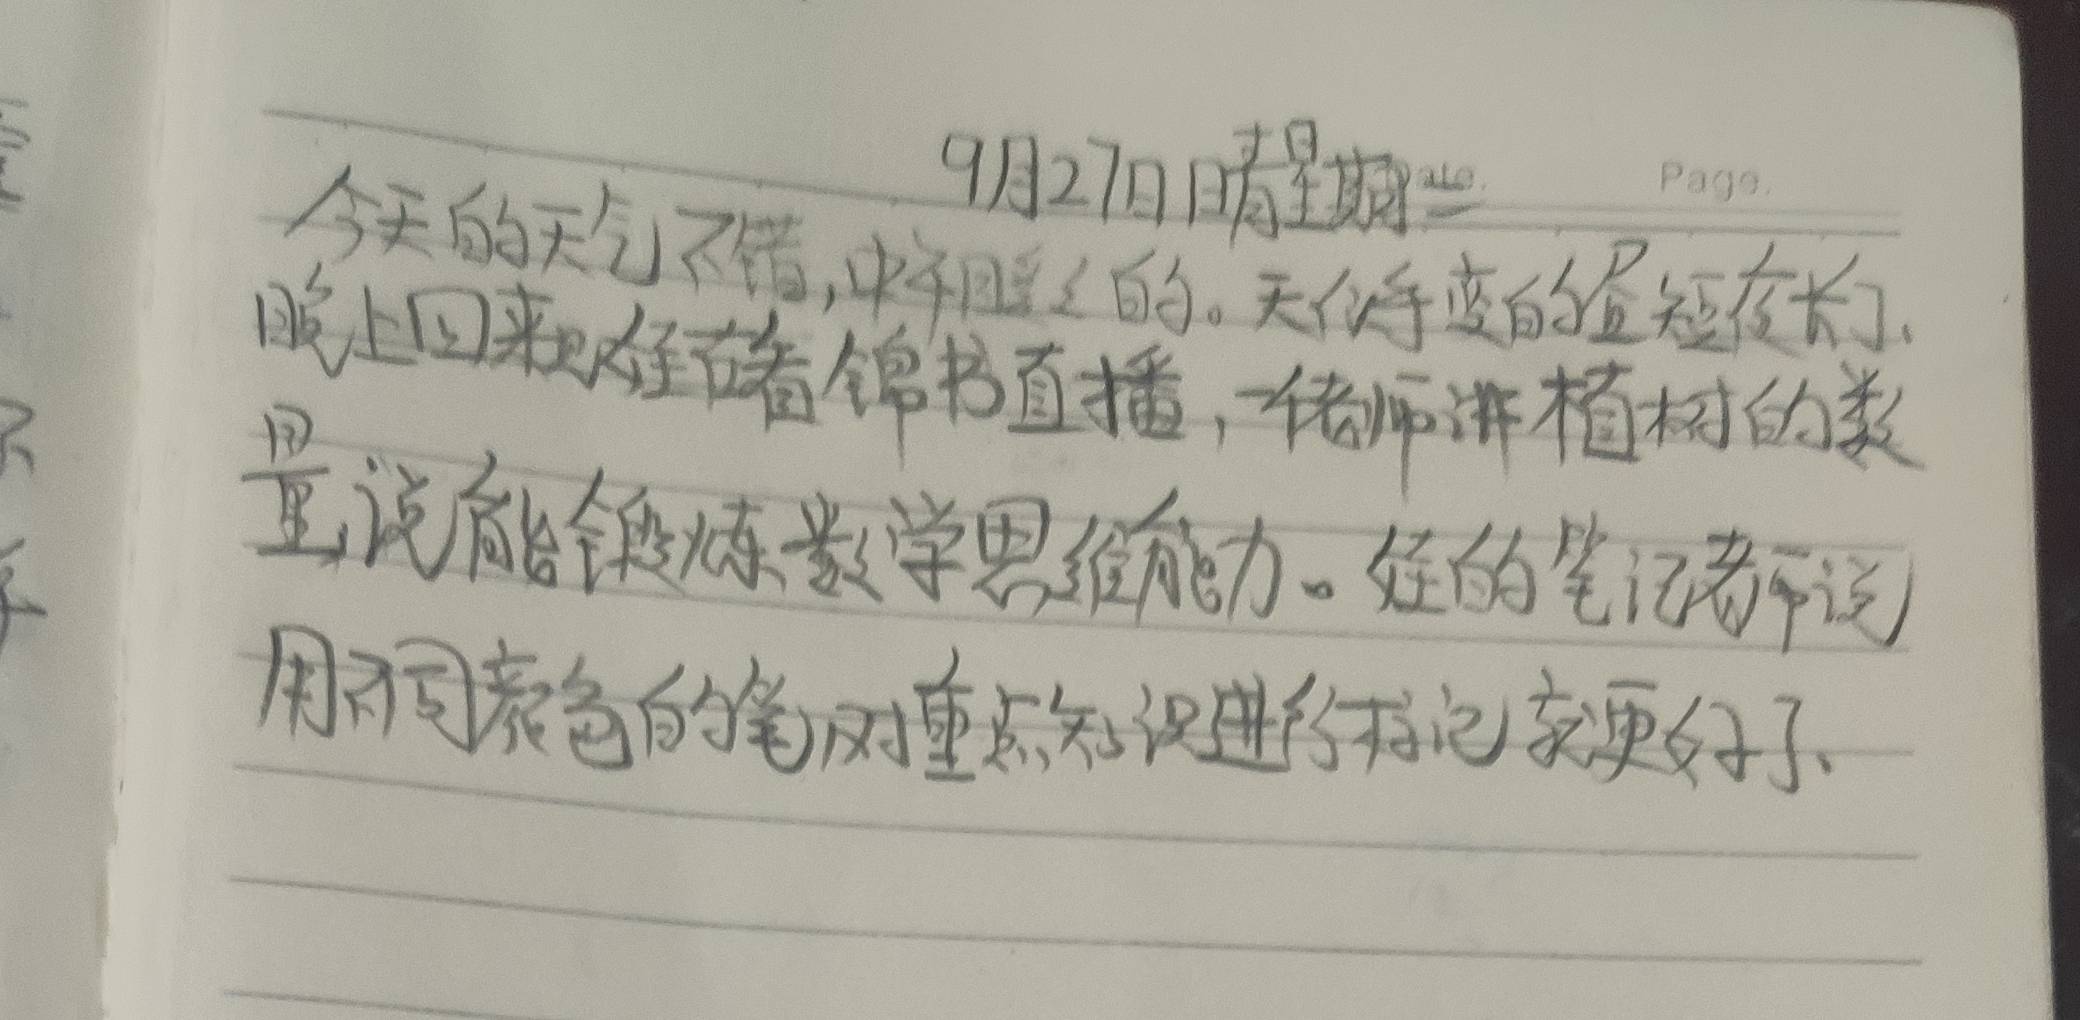 9月27日 晴 星期二
Page.
今天的天气不错,中午暖暖的。天将变的昼短夜长了、
晚上回来见侄在看锦书直播,一佬师讲植树的数
量,说能锻炼数学思维能力。侄的笔记老师说
用不同颜色的笔对重点知识进行标记就更好了、